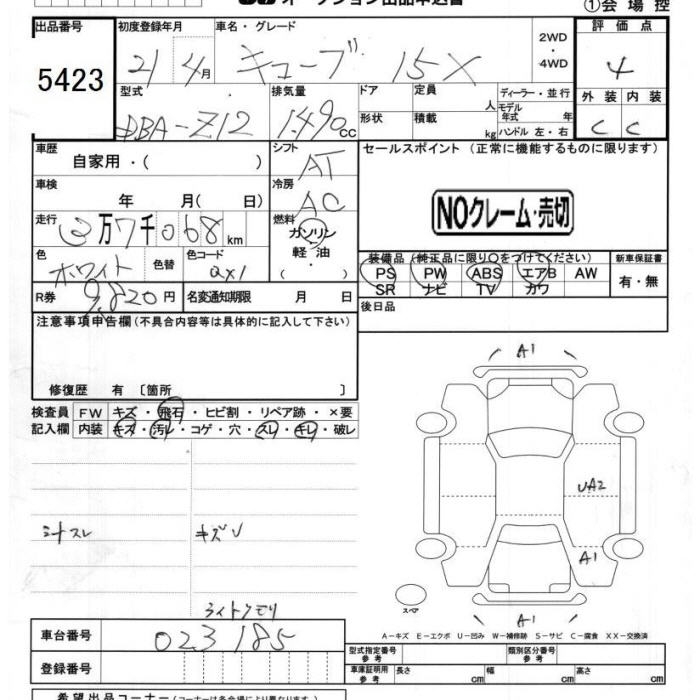 オークション出品申込書
①会場控
出品番号 初度登録年月 車名・グレード 2WD 評価点
5423 21 4月 キューブ 15X ・4WD 4
型式 排気量 ドア 定員 ディーラー・並行 外装 内装
DBA-Z12 1490cc 人 モデル年式 年 C C
形状 積載 kg ハンドル 左・右
車歴 シフト セールスポイント (正常に機能するものに限ります)
自家用・( ) AT
車検 冷房 NOクレーム・売切
年 月( 日) AC
走行 燃料
③万7千068km ガソリン
軽油
・( )
色 色替 色コード 装備品 (純正品に限り○をつけてください) 新車保証書
ホワイト QX1 PS PW ABS エアB AW 有・無
SR ナビ TV カワ
R券 9,820円 名変通知期限 月 日 後日品
注意事項申告欄 (不具合内容等は具体的に記入して下さい)
修復歴 有 〔箇所 〕
検査員 FW キズ・飛石・ヒビ割・リペア跡・×要
記入欄 内装 キズ・汚レ・コゲ・穴・スレ・キレ・破レ
A1
UA2
A1
シートスレ キズU
スペア
A1
ライトクモリ
A-キズ E-エクボ U-凹み W-補修跡 S-サビ C-腐食 XX-交換済
車台番号 023185
型式指定番号 参考 類別区分番号 参考
登録番号 車庫証明用 参考 長さ cm 幅 cm 高さ cm
希望出品コーナー (コーナーは各会場により異なります)